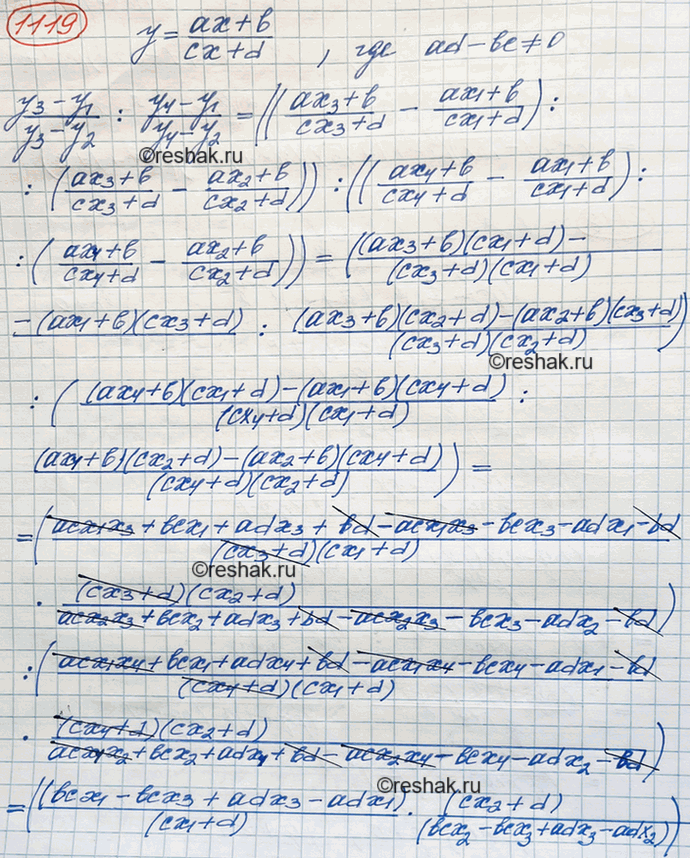 1119
y = (ax+b)/(cx+d), где ad-bc≠0
(y₃-y₁)/(y₃-y₂) : (y₄-y₁)/(y₄-y₂) = (((ax₃+b)/(cx₃+d) - (ax₁+b)/(cx₁+d)) :
©reshak.ru
: ((ax₃+b)/(cx₃+d) - (ax₂+b)/(cx₂+d))) : (((ax₄+b)/(cx₄+d) - (ax₁+b)/(cx₁+d)) :
: ((ax₄+b)/(cx₄+d) - (ax₂+b)/(cx₂+d))) = (((ax₃+b)(cx₁+d) -)/((cx₃+d)(cx₁+d))
-(ax₁+b)(cx₃+d) : ((ax₃+b)(cx₂+d)-(ax₂+b)(cx₃+d))/((cx₃+d)(cx₂+d)))
©reshak.ru
: (((ax₄+b)(cx₁+d)-(ax₁+b)(cx₄+d))/((cx₄+d)(cx₁+d)) :
((ax₄+b)(cx₂+d)-(ax₂+b)(cx₄+d))/((cx₄+d)(cx₂+d))) =
= ((acx₁x₃+bcx₁+adx₃+bd-acx₁x₃-bcx₃-adx₁-bd)/((cx₃+d)(cx₁+d))
©reshak.ru
· ((cx₃+d)(cx₂+d))/(acx₂x₃+bcx₂+adx₃+bd-acx₂x₃-bcx₃-adx₂-bd))
: ((acx₁x₄+bcx₁+adx₄+bd-acx₁x₄-bcx₄-adx₁-bd)/((cx₄+d)(cx₁+d))
· ((cx₄+d)(cx₂+d))/(acx₄x₂+bcx₂+adx₄+bd-acx₂x₄-bcx₄-adx₂-bd))
= (((bcx₁-bcx₃+adx₃-adx₁)/(cx₁+d) · (cx₂+d)/(bcx₂-bcx₃+adx₃-adx₂))
©reshak.ru